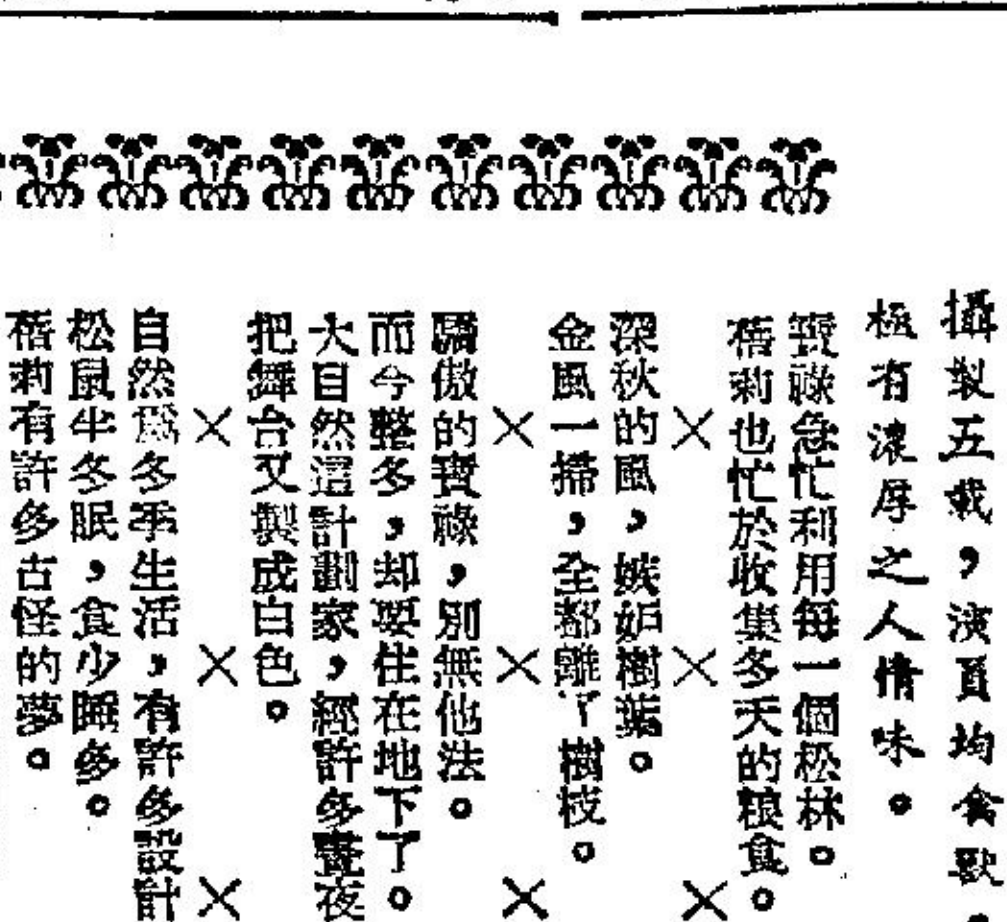 攝製五載，演員均禽獸。
極有濃厚之人情味。
寶祿急忙利用每一個松林。
蓓莉也忙於收集冬天的粮食。
×××
深秋的風，嫉妒樹葉。
金風一掃，全都離了樹枝。
×××
驕傲的寶祿，別無他法。
而今整冬，却要住在地下了。
大自然這計劃家，經許多晝夜
把舞台又製成白色。
×××
自然爲冬季生活，有許多設計
松鼠半冬眠，食少睡多。
蓓莉有許多古怪的夢。